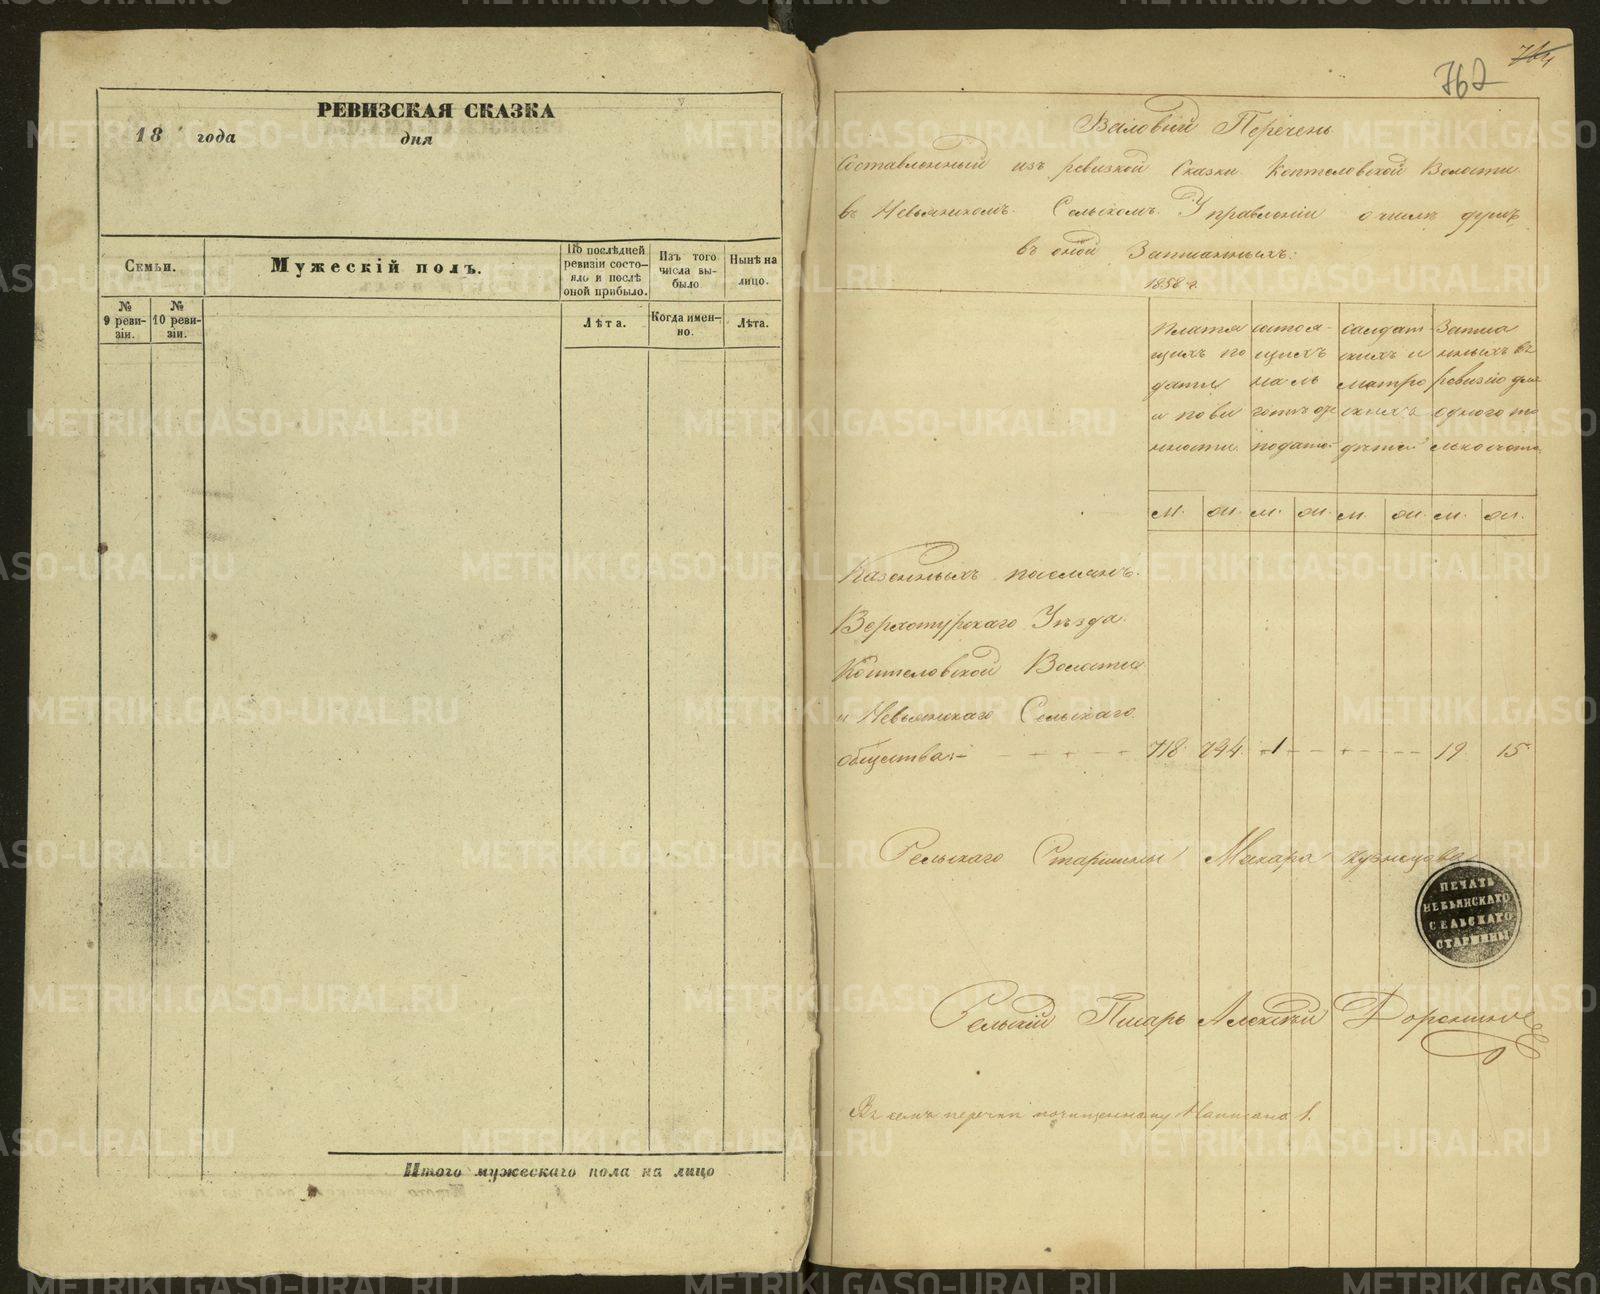 РЕВИЗСКАЯ СКАЗКА
18 года дня
Семьи.
Мужескій полъ.
По послѣдней ревизіи состо-
яло и послѣ
оной прибыло.
Изъ того
числа вы-
было
Нынѣ на
лицо.
№
9 реви-
зіи.
№
10 реви-
зіи.
Лѣта.
Когда имен-
но.
Лѣта.
Итого мужескаго пола на лицо
762
Валовый Перечень
Составленный изъ ревизкой Сказки Коптеловской Волости
въ Невьянскомъ Сельскомъ Управленіи о числѣ душъ
въ оной Записанныхъ:
1858 г.
Платя
щихъ по
дати
и пови
нности
состоя
щихъ
на ль
готѣ отъ
податей
салдат
скихъ и
матро
скихъ
дѣтей
Записа
нныхъ въ
ревизію для
одного то
лько счета
м. ж. м. ж. м. ж. м. ж.
Казенныхъ поселянъ
Верхотурскаго Уѣзда
Коптеловской Волости
и Невьянскаго Сельскаго
общества:
718. 794. 1 19 15
Сельскаго Старшины Макара Кузнецова
ПЕЧАТЬ
НЕВЬЯНСКАГО
СЕЛЬСКАГО
СТАРШИНЫ
Сельскій Писарь Алексѣй
Въ семъ перечнѣ почищенному Написано 1.
METRIKI.GASO-URAL.RU